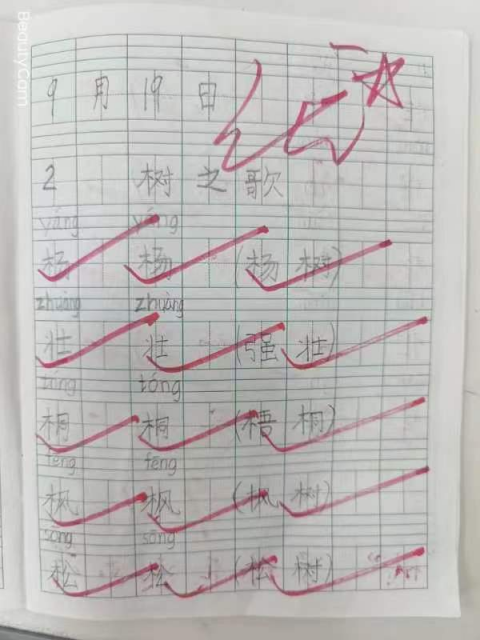 BeautyCom
9月19日
2 树之歌
yáng yáng
杨 杨 (杨树)
zhuàng zhuàng
壮 壮 (强壮)
tóng tóng
桐 桐 (梧桐)
fēng fēng
枫 枫 (枫树)
sōng sōng
松 松 (松树)